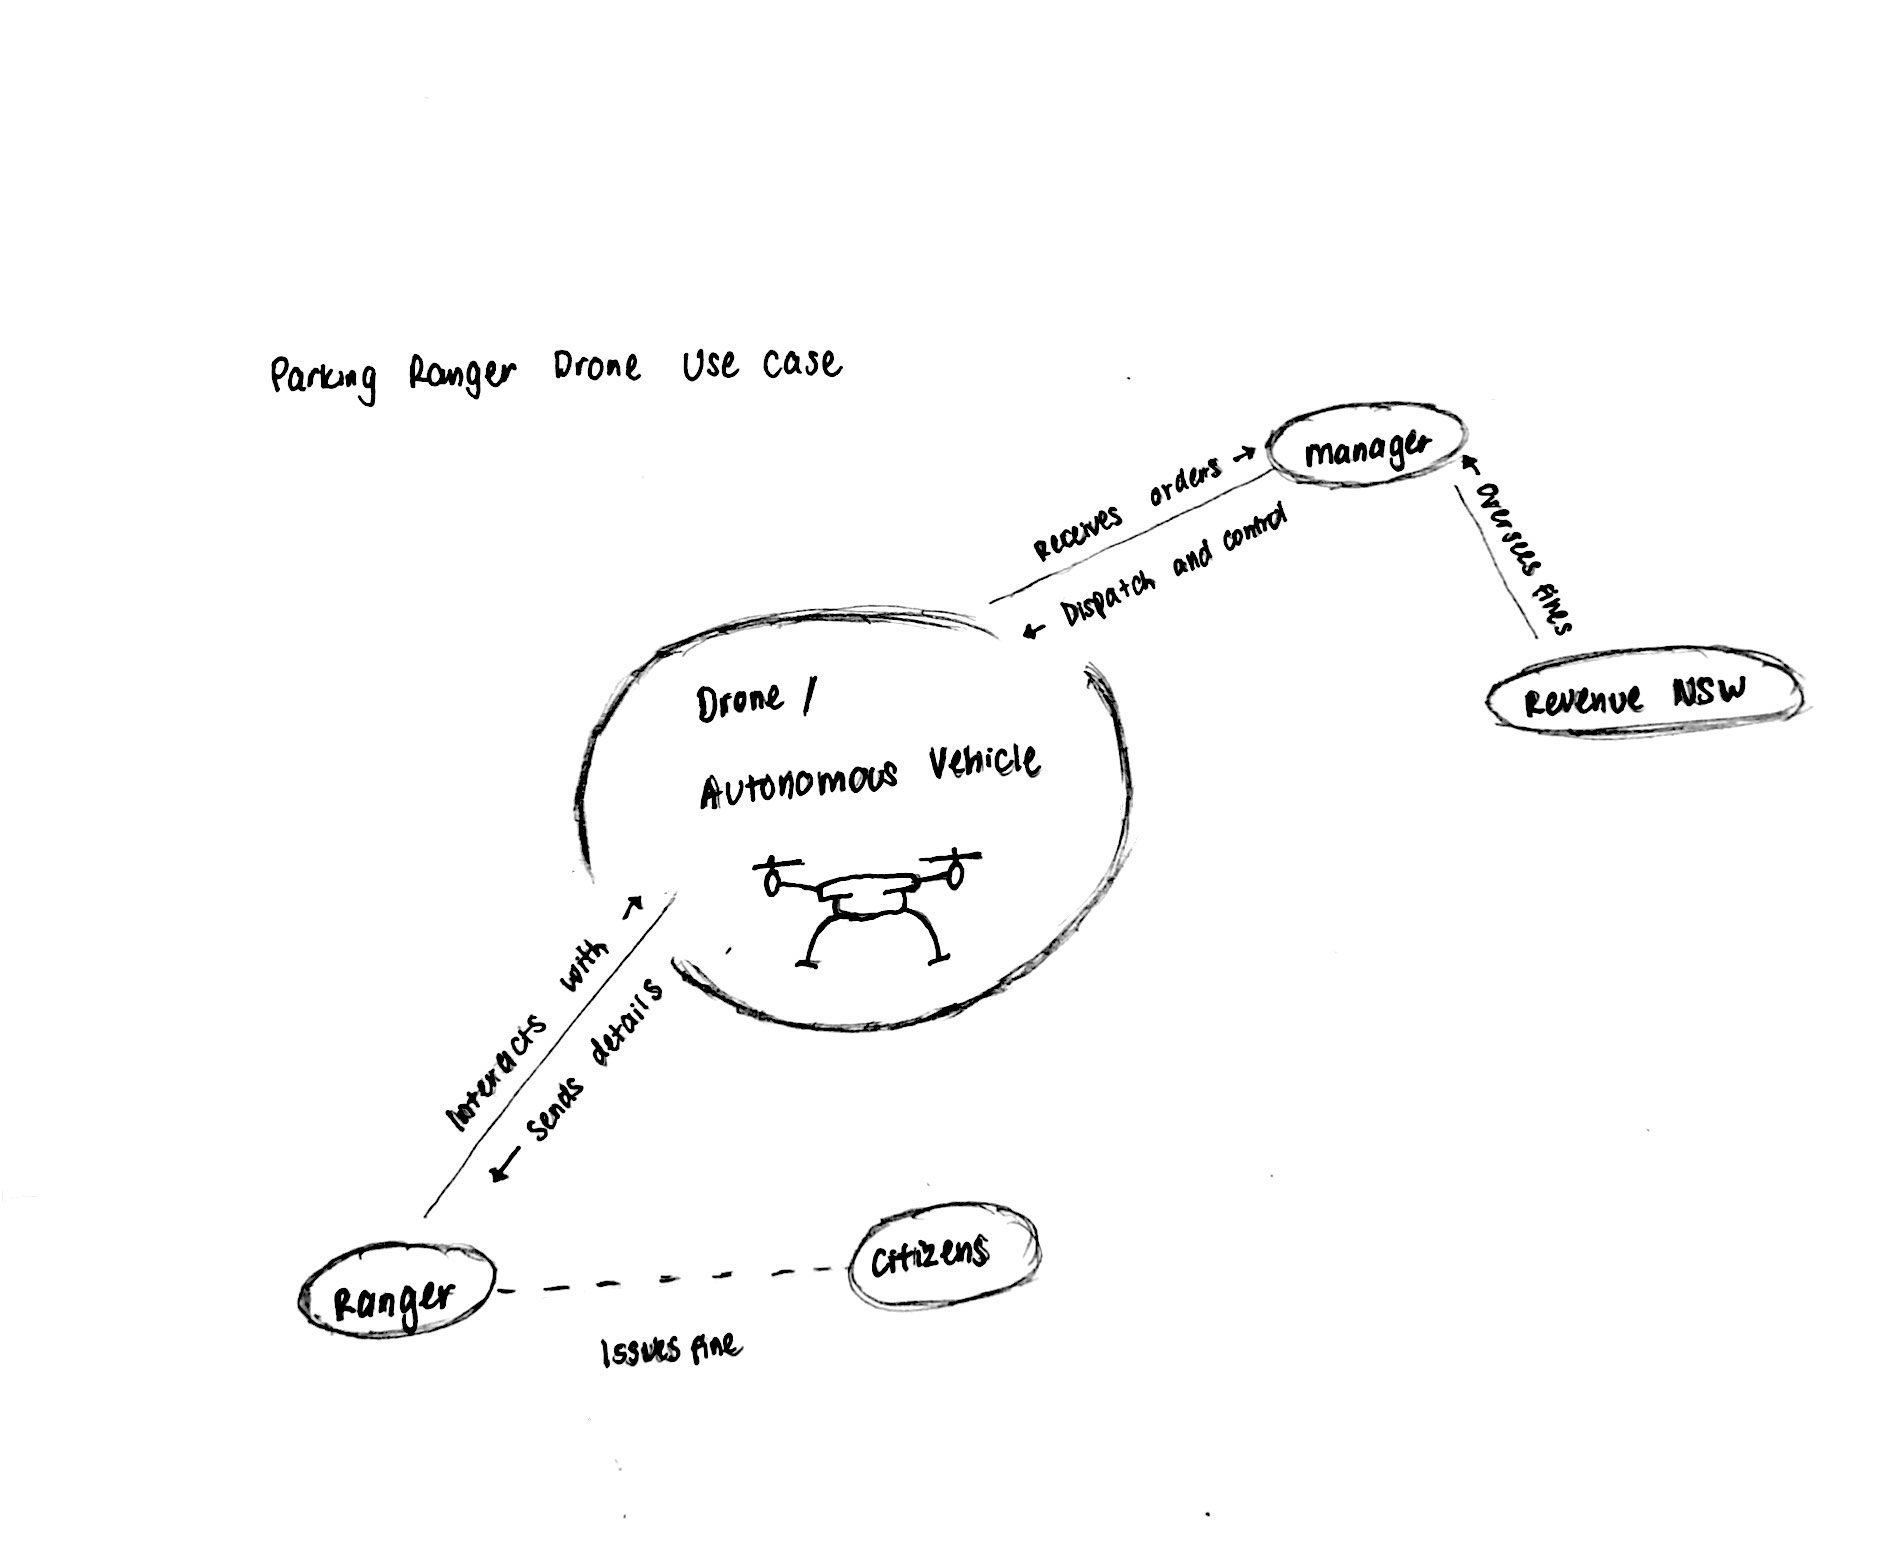 Parking Ranger Drone Use Case
manager
Receives orders →
← Dispatch and control
Oversees fines
Revenue NSW
Drone /
Autonomous Vehicle
Interacts with
Sends details
Ranger
Citizens
Issues fine